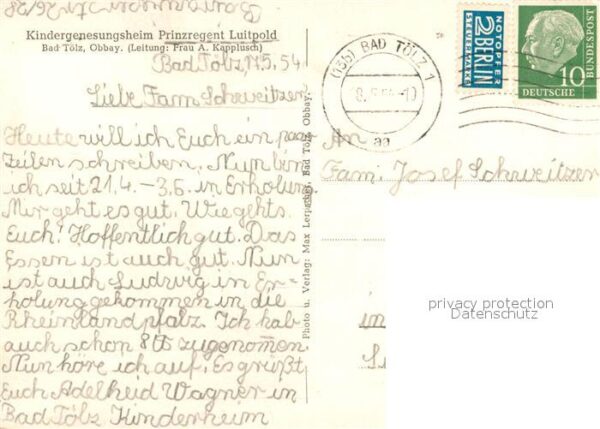 Kindergenesungsheim Prinzregent Luitpold
Bad Tölz, Obbay. (Leitung: Frau A. Kapplusch)
Bad Tölz, 17.5.54
Liebe Fam Schweitzer
Heute will ich Euch ein paar
Zeilen schreiben. Nun bin
ich seit 21.4. – 3.6. in Erholung.
Mir geht es gut. Wie gehts
Euch! Hoffentlich gut. Das
Essen ist auch gut. Nun
ist auch Ludwig in Er-
holung gekommen in die
Rheinlandpfalz. Ich hab
auch schon 8 tt zugenomen.
Nun höre ich auf. Es grüßt
Euch Adelheid Wagner in
Bad Tölz Kinderheim
Photo u. Verlag: Max Lerpscher, Bad Tölz Obbay.
(13b) BAD TÖLZ 1
aa
NOTOPFER
2 BERLIN
STEUERMARKE
10
DEUTSCHE BUNDESPOST
An
Fam. Josef Schweitzer
in
privacy protection
Datenschutz